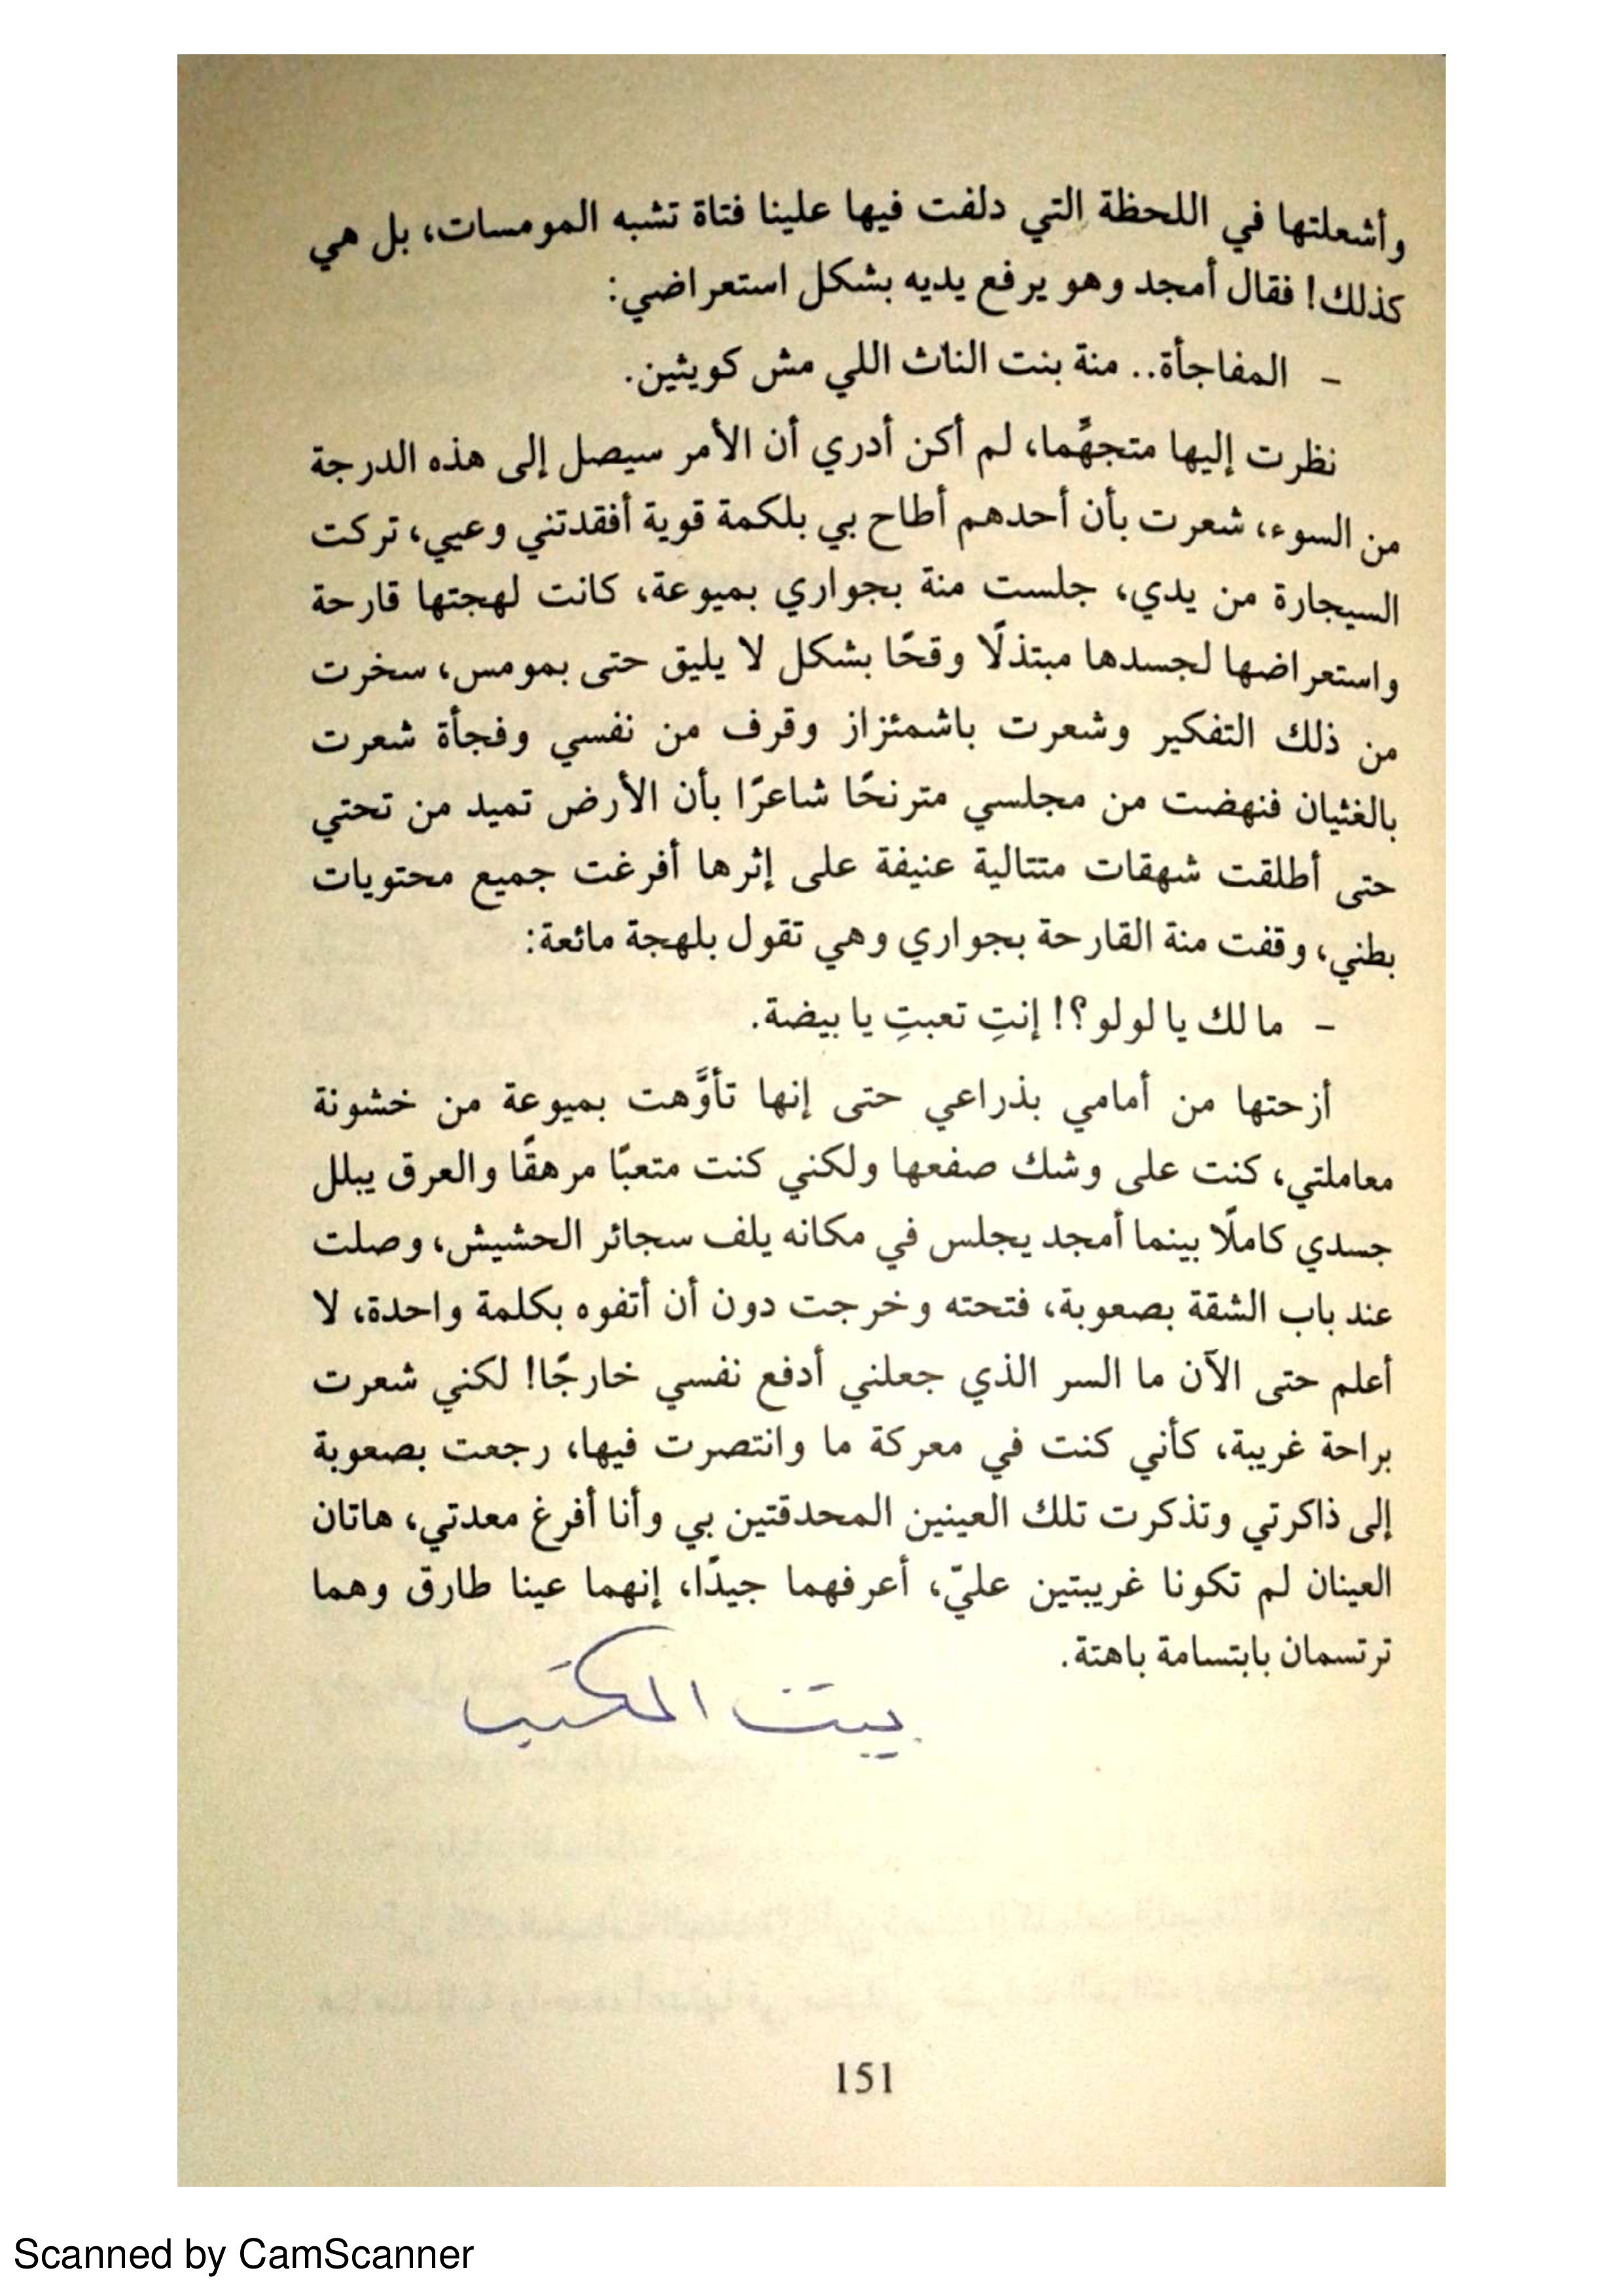 وأشعلتها في اللحظة التي دلفت فيها علينا فتاة تشبه المومسات، بل هي
كذلك! فقال أمجد وهو يرفع يديه بشكل استعراضي:
- المفاجأة.. منة بنت الناث اللي مش كويثين.
نظرت إليها متجهًما، لم أكن أدري أن الأمر سيصل إلى هذه الدرجة
من السوء، شعرت بأن أحدهم أطاح بي بلكمة قوية أفقدتني وعيي، تركت
السيجارة من يدي، جلست منة بجواري بميوعة، كانت لهجتها قارحة
واستعراضها لجسدها مبتذلًا وقحًا بشكل لا يليق حتى بمومس، سخرت
من ذلك التفكير وشعرت باشمئزاز وقرف من نفسي وفجأة شعرت
بالغثيان فنهضت من مجلسي مترنحًا شاعرًا بأن الأرض تميد من تحتي
حتى أطلقت شهقات متتالية عنيفة على إثرها أفرغت جميع محتويات
بطني، وقفت منة القارحة بجواري وهي تقول بلهجة مائعة:
- ما لك يا لولو؟! إنتِ تعبتِ يا بيضة.
أزحتها من أمامي بذراعي حتى إنها تأوَّهت بميوعة من خشونة
معاملتي، كنت على وشك صفعها ولكني كنت متعبًا مرهقًا والعرق يبلل
جسدي كاملًا بينما أمجد يجلس في مكانه يلف سجائر الحشيش، وصلت
عند باب الشقة بصعوبة، فتحته وخرجت دون أن أتفوه بكلمة واحدة، لا
أعلم حتى الآن ما السر الذي جعلني أدفع نفسي خارجًا! لكني شعرت
براحة غريبة، كأني كنت في معركة ما وانتصرت فيها، رجعت بصعوبة
إلى ذاكرتي وتذكرت تلك العينين المحدقتين بي وأنا أفرغ معدتي، هاتان
العينان لم تكونا غريبتين عليّ، أعرفهما جيدًا، إنهما عينا طارق وهما
ترتسمان بابتسامة باهتة.
بيت الكتب
151
Scanned by CamScanner